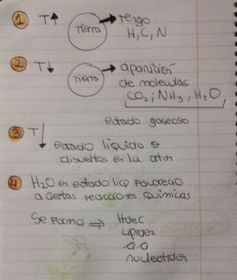 1 T↑ Tierra → fuego
H, C, N
2 T↓ Tierra → aparición
de moléculas
CO2; NH3, H2O
estado gaseoso
3 T↓
estado líquido o
disueltos en la atm
4 H2O en estado liq favoreció
a ciertas reacciones químicas
Se formo ⇒
lípidos
aa
nucleótidos